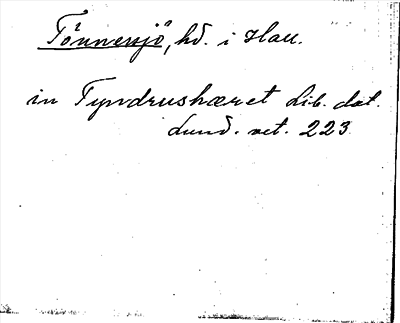 Tönnersjö, hd. i Hall.
in Tyndrushæret Lib. dat.
Lund. vet. 223